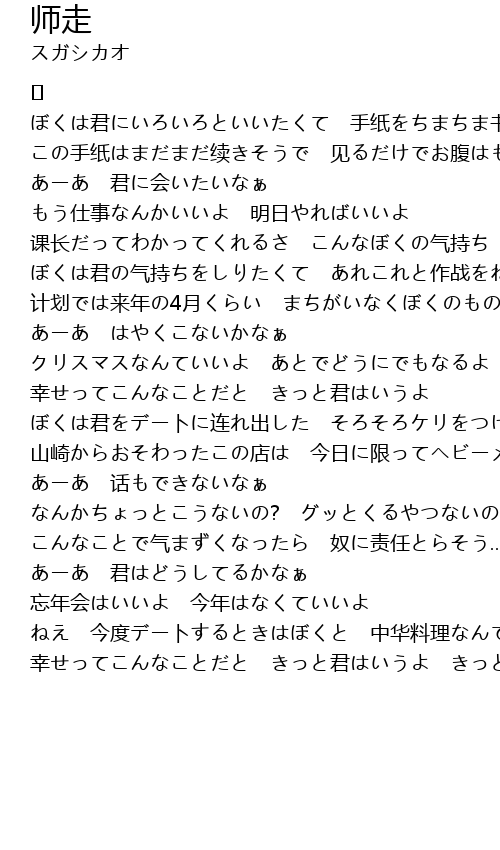 师走
スガシカオ
[]
ぼくは君にいろいろといいたくて　手纸をちまちま
この手纸はまだまだ续きそうで　见るだけでお腹は
あーあ　君に会いたいなぁ
もう仕事なんかいいよ　明日やればいいよ
课长だってわかってくれるさ　こんなぼくの气持ち
ぼくは君の气持ちをしりたくて　あれこれと作战を
计划では来年の4月くらい　まちがいなくぼくのもの
あーあ　はやくこないかなぁ
クリスマスなんていいよ　あとでどうにでもなるよ
幸せってこんなことだと　きっと君はいうよ
ぼくは君をデートに连れ出した　そろそろケリをつ
山崎からおそわったこの店は　今日に限ってヘビー
あーあ　话もできないなぁ
なんかちょっとこうないの?　グッとくるやつないの
こんなことで气まずくなったら　奴に责任とらそう...
あーあ　君はどうしてるかなぁ
忘年会はいいよ　今年はなくていいよ
ねえ　今度デートするときはぼくと　中华料理なん
幸せってこんなことだと　きっと君はいうよ　きっ